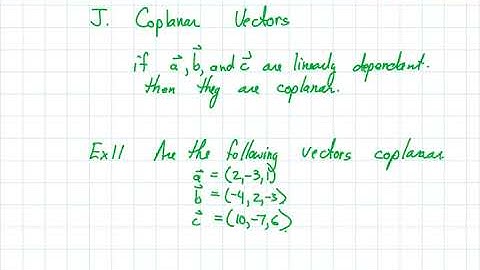 J. Coplanar Vectors
if a⃗, b⃗, and c⃗ are linearly dependent.
then they are coplanar.
Ex 11 Are the following vectors coplanar
a⃗ = (2,-3,1)
b⃗ = (-4,2,-3)
c⃗ = (10,-7,6)